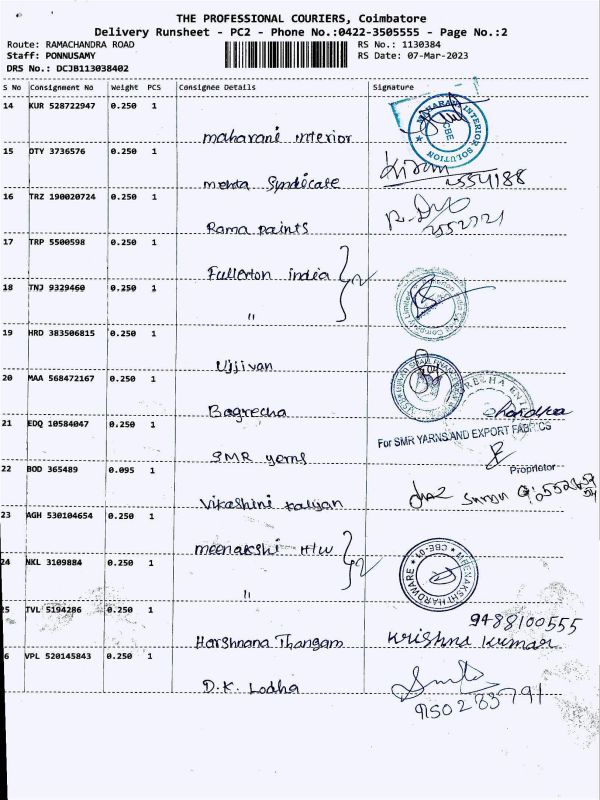 THE PROFESSIONAL COURIERS, Coimbatore
Delivery Runsheet - PC2 - Phone No.:0422-3505555 - Page No.:2
Route: RAMACHANDRA ROAD RS No.: 1130384
Staff: PONNUSAMY RS Date: 07-Mar-2023
DRS No.: DCJB113038402
S No Consignment No Weight PCS Consignee Details Signature
14 KUR 528722947 0.250 1
maharani interior
MAHARANI INTERIOR SOLUTION CBE
15 OTY 3736576 0.250 1
mehta Syndicate Kiran 2554188
16 TRZ 190020724 0.250 1
Rama paints 2552721
17 TRP 5500598 0.250 1
Fullerton india 2
18 TNJ 9329460 0.250 1
"
19 HRD 383506815 0.250 1
Ujjivan
20 MAA 568472167 0.250 1
Bagrecha Chandhra
21 EDQ 10584047 0.250 1
For SMR YARNS AND EXPORT FABRICS
SMR yerns
Proprietor
22 BOD 365489 0.095 1
Vikashini kalyan
23 AGH 530104654 0.250 1
meenakshi H/w 2
MEENAKSHI HARDWARE CBE-01
24 NKL 3109884 0.250 1
"
25 TVL 5194286 0.250 1
9488100555
Harshnana Thangam Krishna Kumar
6 VPL 520145843 0.250 1
D.K. Lodha
9150283791